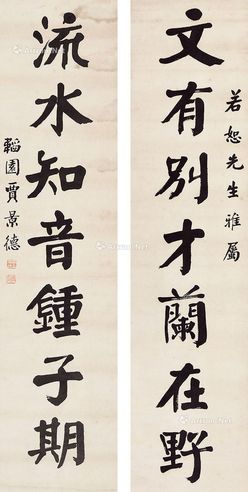 若恕先生雅屬
文有別才蘭在野
流水知音鍾子期
韜園賈景德